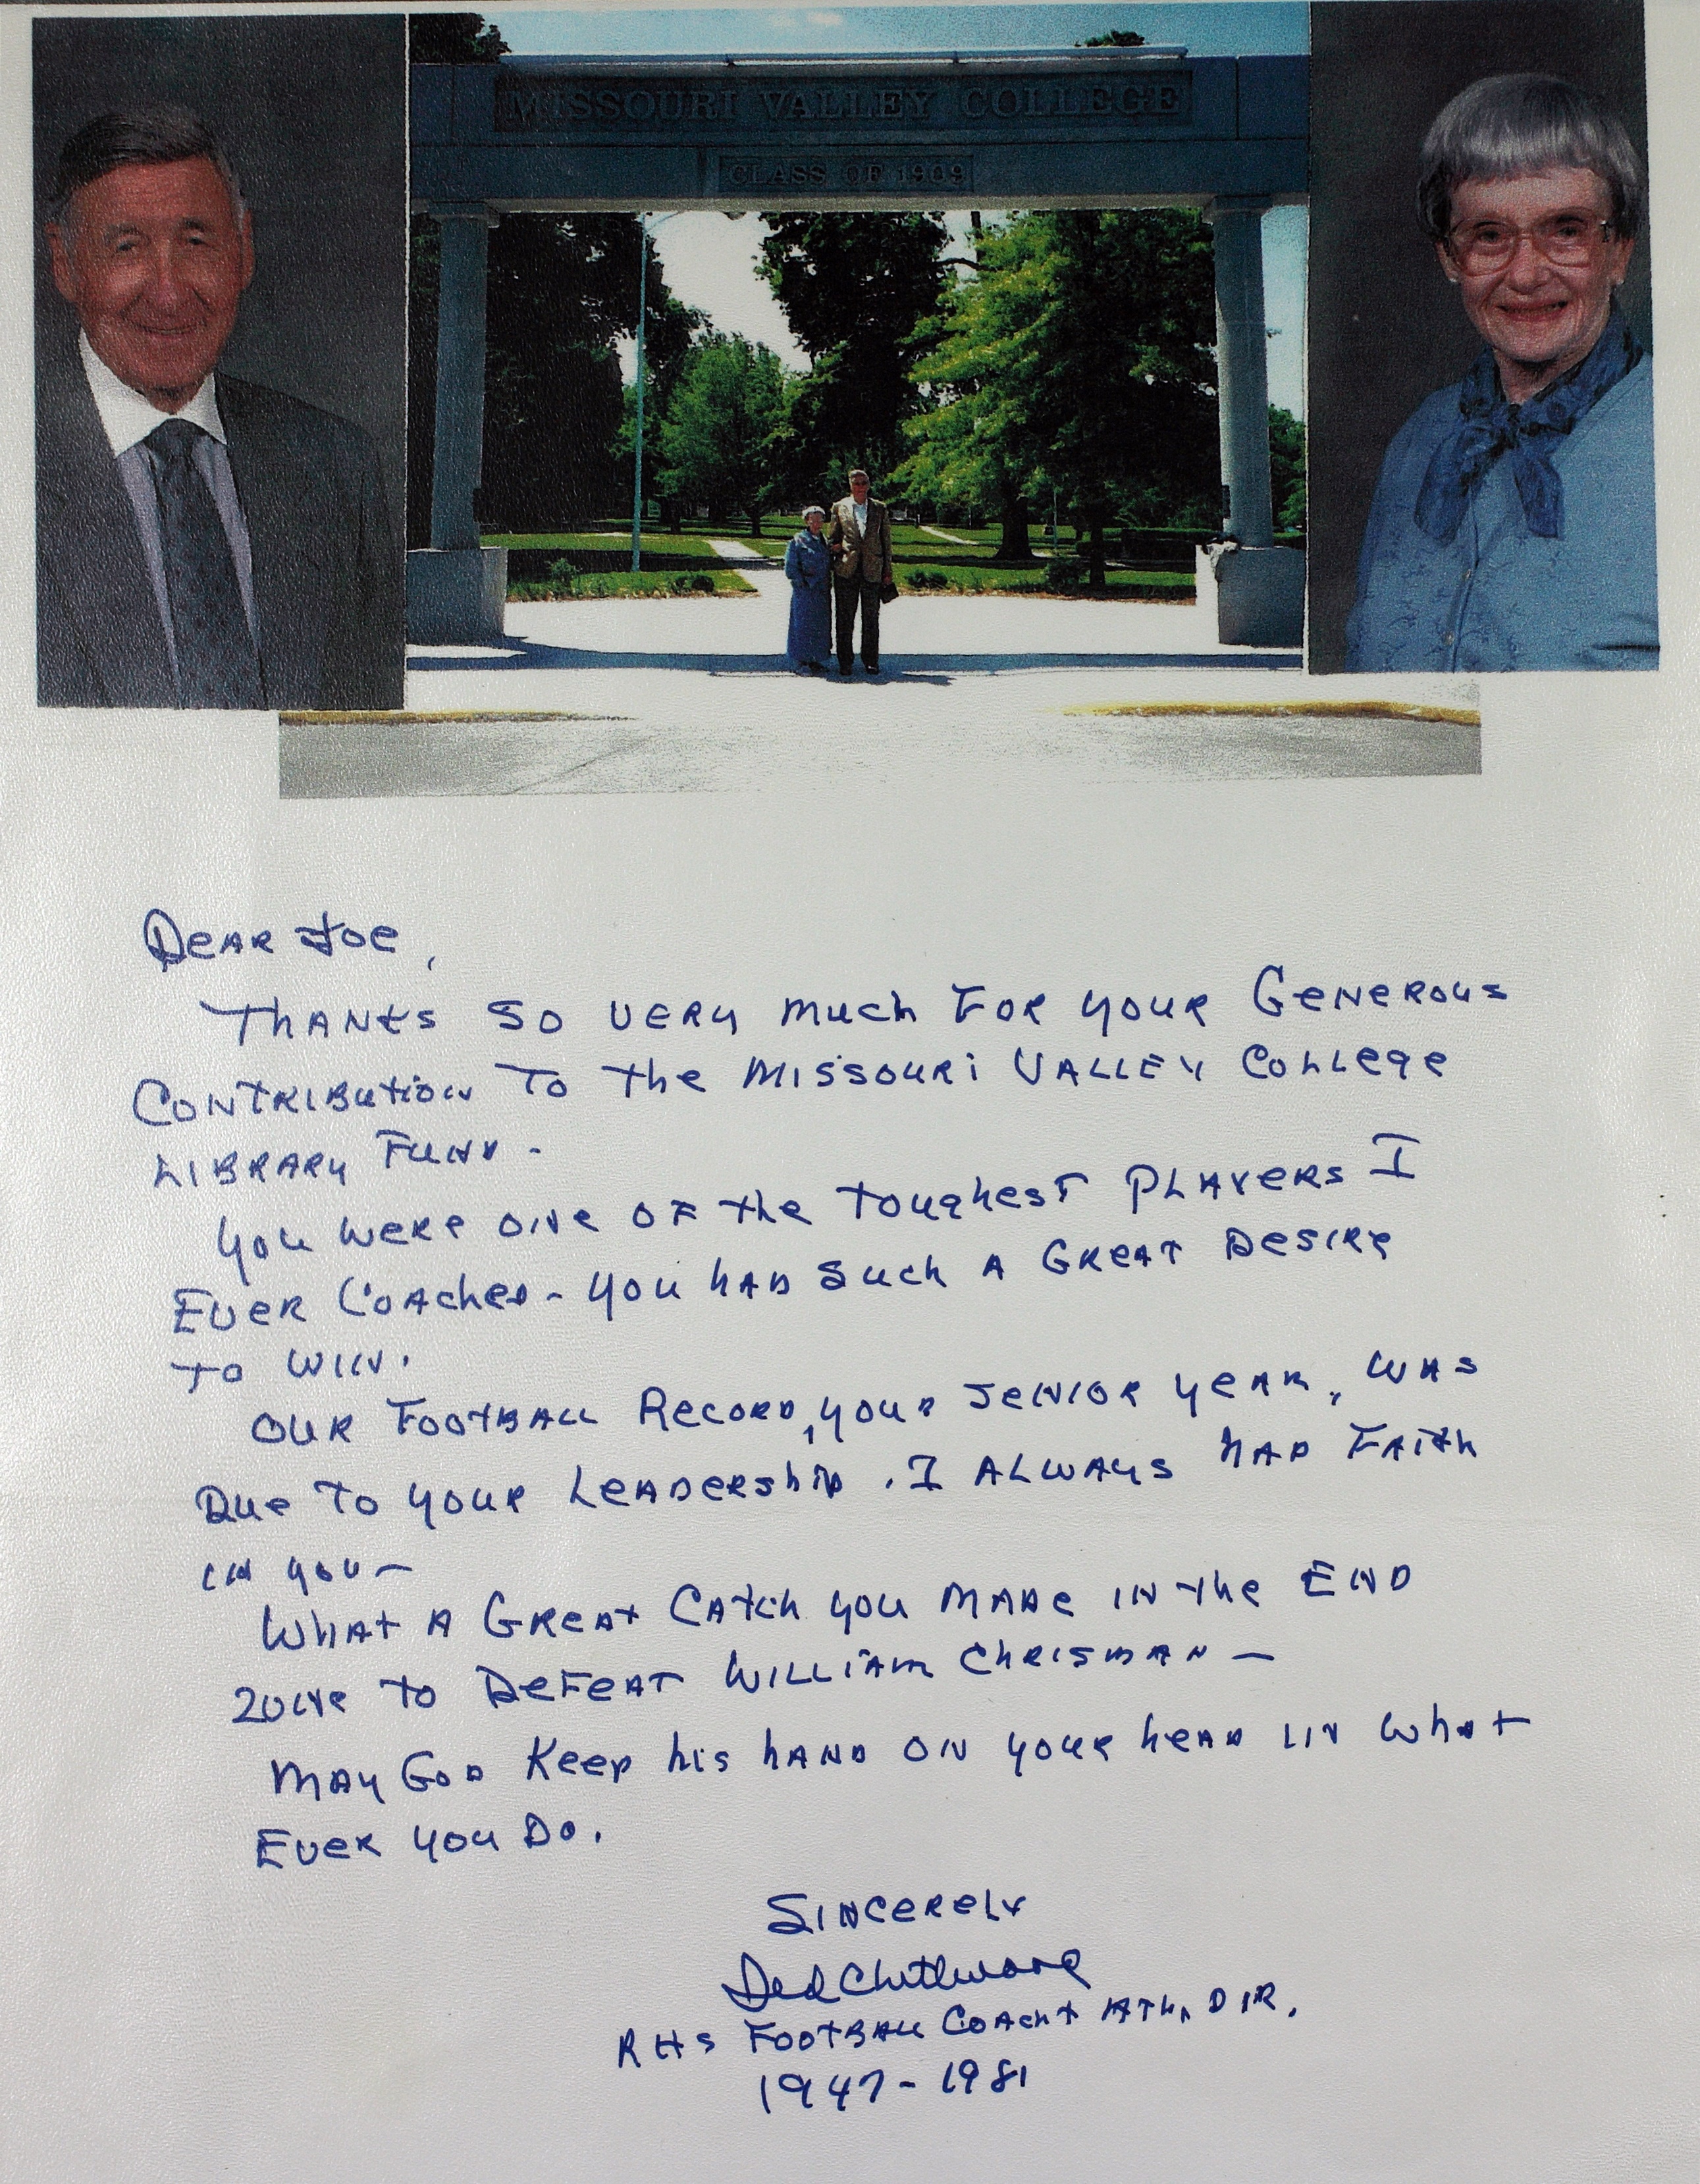 MISSOURI VALLEY COLLEGE
CLASS OF 1909
DEAR JOE,
THANKS SO VERY MUCH FOR YOUR GENEROUS
CONTRIBUTION TO THE MISSOURI VALLEY COLLEGE
LIBRARY FUND -
YOU WERE ONE OF THE TOUGHEST PLAYERS I
EVER COACHED - YOU HAD SUCH A GREAT DESIRE
TO WIN.
OUR FOOTBALL RECORD, YOUR SENIOR YEAR, WAS
DUE TO YOUR LEADERSHIP. I ALWAYS HAD FAITH
IN YOU -
WHAT A GREAT CATCH YOU MADE IN THE END
ZONE TO DEFEAT WILLIAM CHRISMAN -
MAY GOD KEEP HIS HAND ON YOUR HEAD IN WHAT
EVER YOU DO.
SINCERELY
RHS FOOTBALL COACH + ATH. DIR.
1947 - 1981